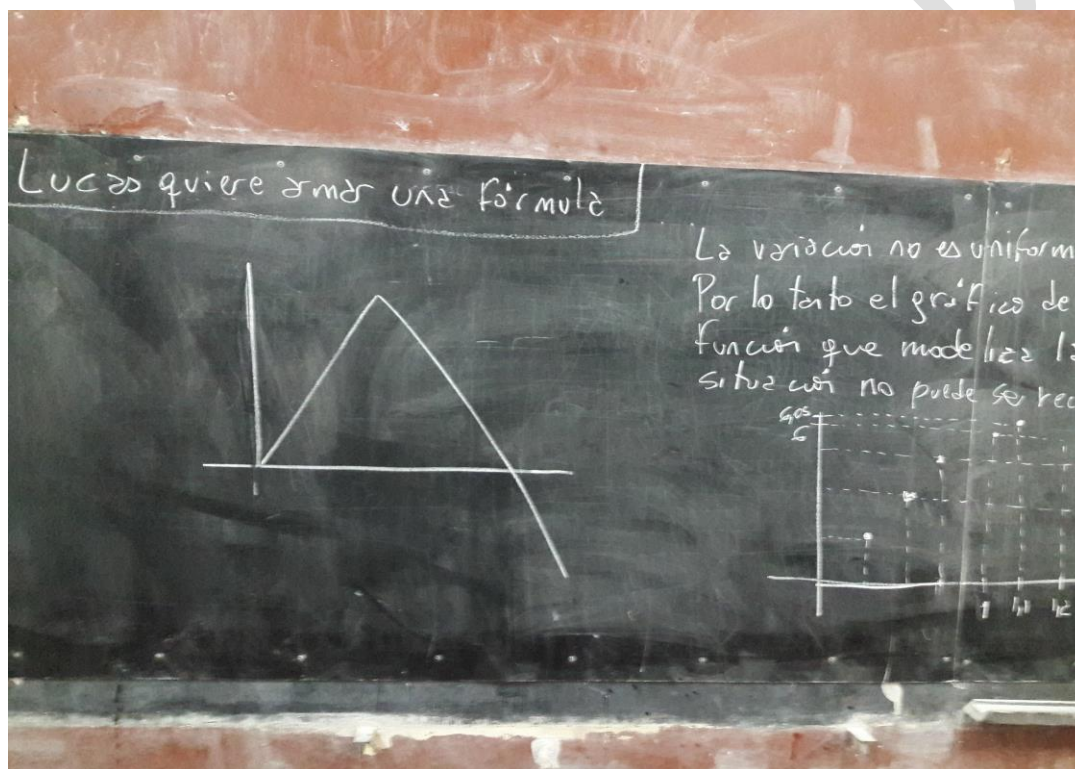 Lucas quiere armar una fórmula
La variación no es uniform
Por lo tanto el gráfico de
función que modeliza la
situación no puede ser rec
6,05
6
1 1,1 1,2